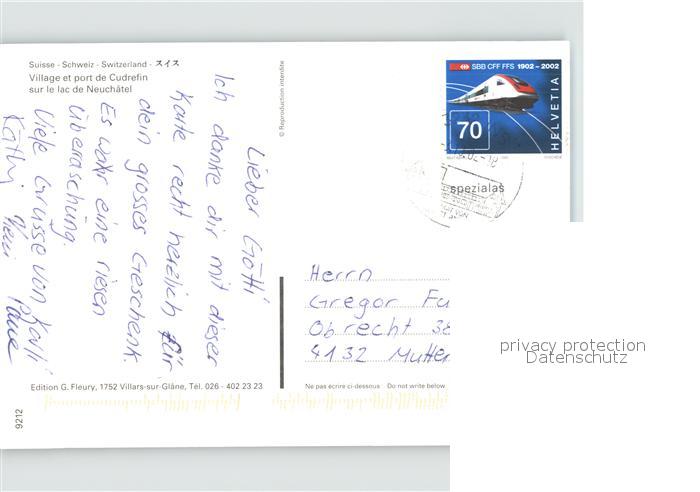 Suisse - Schweiz - Switzerland - スイス
Village et port de Cudrefin
sur le lac de Neuchâtel
Lieber Götti
Ich danke dir mit dieser
Karte recht herzlich für
dein grosses Geschenk.
Es wahr eine riesen
Überraschung.
Viele Grüsse von Karli
Käthi
© Reproduction interdite
SBB CFF FFS 1902 – 2002
70
HELVETIA
spezialas
Herrn
Gregor Fu
Obrecht 38
4132 Mutten
privacy protection
Datenschutz
Edition G. Fleury, 1752 Villars-sur-Glâne, Tél. 026 - 402 23 23
Ne pas écrire ci-dessous Do not write below
9212